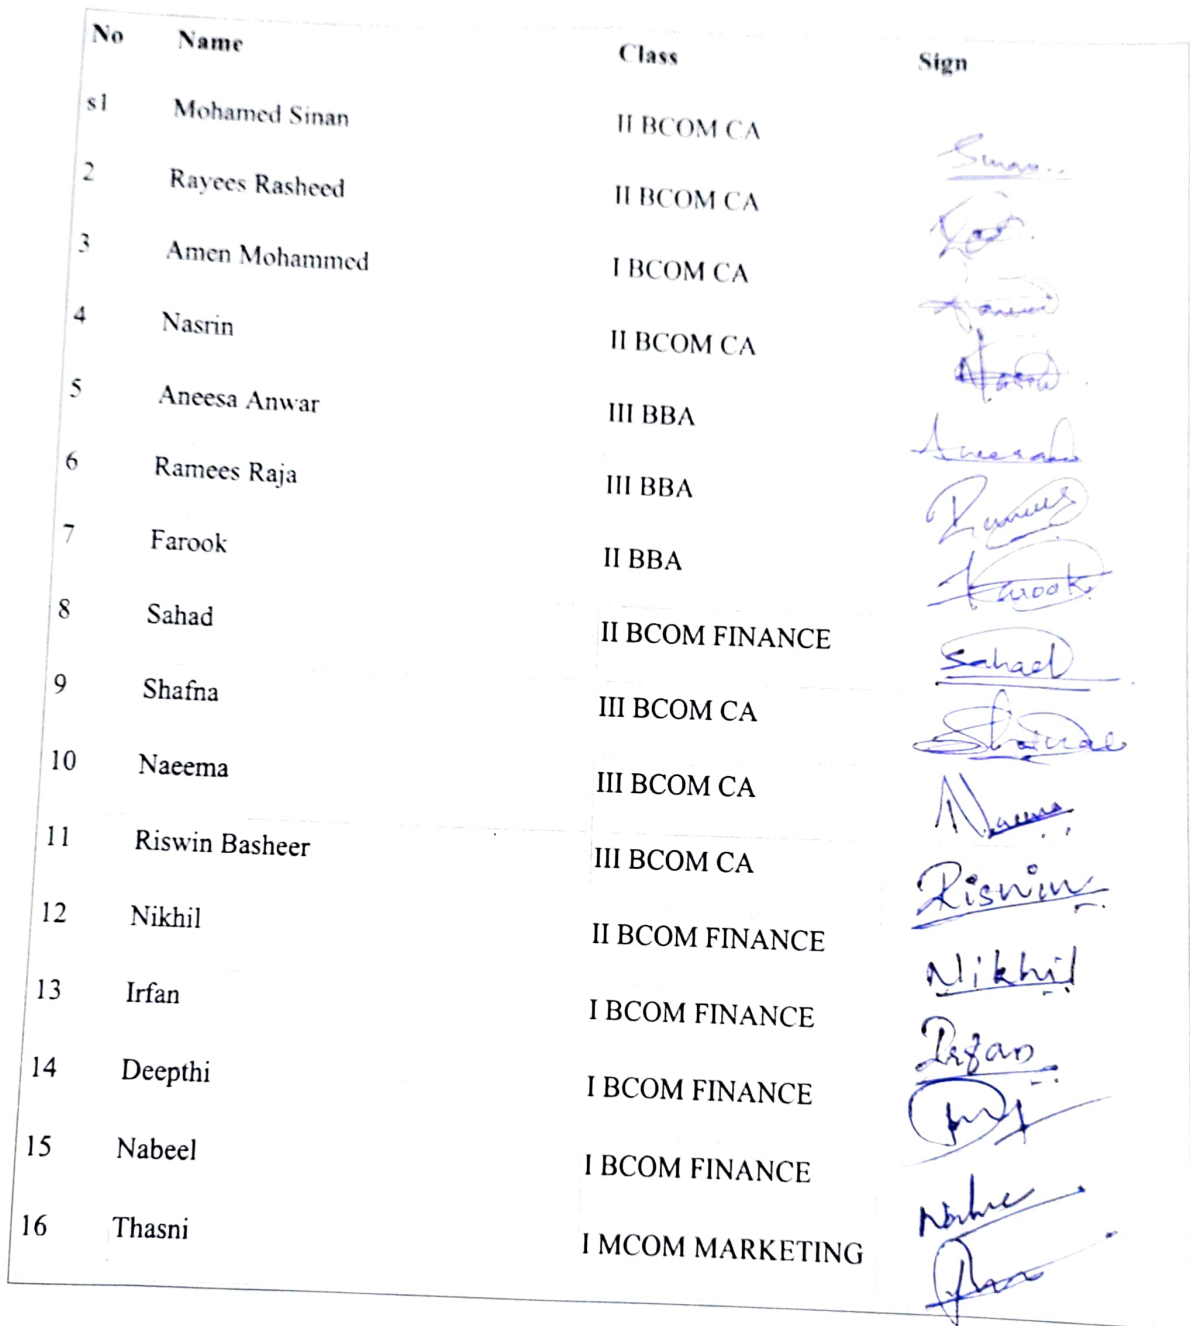 No Name Class Sign
s1 Mohamed Sinan II BCOM CA Sinan..
2 Rayees Rasheed II BCOM CA
3 Amen Mohammed I BCOM CA
4 Nasrin II BCOM CA
5 Aneesa Anwar III BBA
6 Ramees Raja III BBA Ramees
7 Farook II BBA Farook
8 Sahad II BCOM FINANCE Sahad
9 Shafna III BCOM CA
10 Naeema III BCOM CA
11 Riswin Basheer III BCOM CA Riswin
12 Nikhil II BCOM FINANCE Nikhil
13 Irfan I BCOM FINANCE Irfan
14 Deepthi I BCOM FINANCE
15 Nabeel I BCOM FINANCE
16 Thasni I MCOM MARKETING